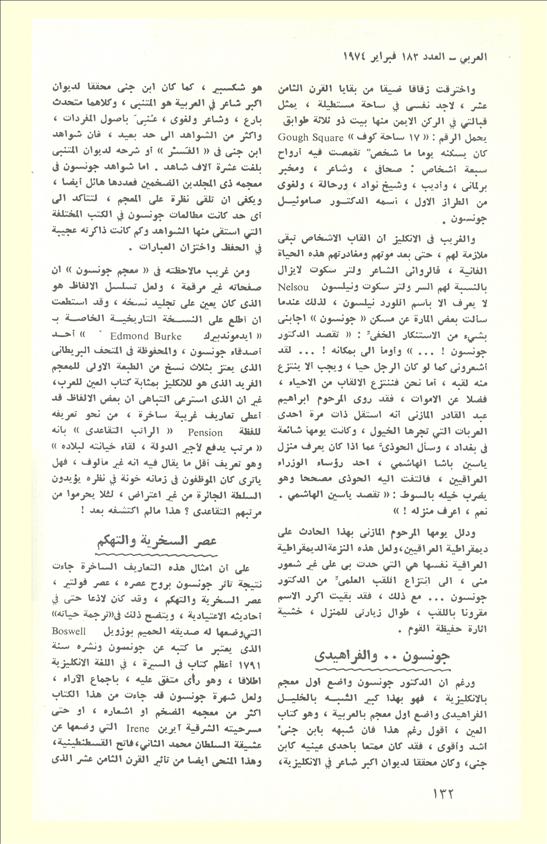 العربي – العدد ١٨٣ فبراير ١٩٧٤
واخترقت زقاقا ضيقا من بقايا القرن الثامن
عشر ، لاجد نفسى في ساحة مستطيلة ، يمثل
قبالتي في الركن الايمن منها بيت ذو ثلاثة طوابق
يحمل الرقم : « ١٧ ساحة كوف » Gough Square
كان يسكنه يوما ما شخص تقمصت فيه أرواح
سبعة أشخاص : صحافى ، وشاعر ، ومخبر
برلمانى ، وأديب ، وشيخ نواد ، ورحالة ، ولغوى
من الطراز الاول ، أسمه الدكتور صاموئيل
جونسون .
والغريب فى الانكليز ان القاب الاشخاص تبقى
ملازمة لهم ، حتى بعد موتهم ومغادرتهم هذه الحياة
الفانية ، فالروائى الشاعر ولتر سكوت لايزال
بالنسبة لهم السر ولتر سكوت ونيلسون Nelsou
لا يعرف الا باسم اللورد نيلسون ، لذلك عندما
سألت بعض المارة عن مسكن « جونسون » اجابنى
بشىء من الاستنكار الخفىّ : « تقصد الدكتور
جونسون ! ... » وأوما الى بمكانه ! ... لقد
أشعرونى كما لو كان الرجل حيا ، ويجب الا ينتزع
منه لقبه ، أما نحن فننتزع الالقاب من الاحياء ،
فضلا عن الاموات ، فقد روى المرحوم ابراهيم
عبد القادر المازنى انه استقل ذات مرة احدى
العربات التي تجرها الخيول ، وكانت يومها شائعة
فى بغداد ، وسأل الحوذىّ عما اذا كان يعرف منزل
ياسين باشا الهاشمي ، احد رؤساء الوزراء
العراقيين ، فالتفت اليه الحوذى مصححا وهو
يضرب خيله بالسوط : « تقصد ياسين الهاشمى .
نعم ، اعرف منزله ! »
ودلل يومها المرحوم المازنى بهذا الحادث على
ديمقراطية العراقيين،ولعل هذه النزعةالديمقراطية
العراقية نفسها هي التي حدت بى على غير شعور
منى ، الى انتزاع اللقب العلمىّ من الدكتور
جونسون ... مع ذلك ، فقد بقيت اكرر الاسم
مقرونا باللقب ، طوال زيارتى للمنزل ، خشية
اثارة حفيظة القوم .
جونسون .. والفراهيدى
ورغم ان الدكتور جونسون واضع اول معجم
بالانكليزية ، فهو بهذا كبير الشبه بالخليل
الفراهيدى واضع اول معجم بالعربية ، وهو كتاب
العين ، أقول رغم هذا فان شبهه بابن جنىّ
اشد وأقوى ، فقد كان ممتعا باحدى عينيه كابن
جنى، وكان محققا لديوان اكبر شاعر في الانكليزية،
هو شكسبير ، كما كان ابن جنى محققا لديوان
اكبر شاعر في العربية هو المتنبى ، وكلاهما متحدث
بارع ، وشاعر ولغوى ، عُنىَ باصول المفردات ،
واكثر من الشواهد الى حد بعيد ، فان شواهد
ابن جنى فى « الفَسْر » أو شرحه لديوان المتنبى
بلغت عشرة آلاف شاهد . اما شواهد جونسون فى
معجمه ذى المجلدين الضخمين فعددها هائل أيضا ،
ويكفى ان تلقى نظرة على المعجم ، لتتأكد الى
أى حد كانت مطالعات جونسون فى الكتب المختلفة
التي استقى منها الشواهد وكم كانت ذاكرته عجيبة
في الحفظ واختزان العبارات .
ومن غريب مالاحظته فى « معجم جونسون » ان
صفحاته غير مرقمة ، ولعل تسلسل الالفاظ هو
الذى كان يعين على تجليد نسخه ، وقد استطعت
ان اطلع على النسخة التاريخية الخاصة بـ
« ايدموندبيرك Edmond Burke » أحد
أصدقاء جونسون ، والمحفوظة فى المتحف البريطانى
الذى يعتز بثلاث نسخ من الطبعة الاولى للمعجم
الفريد الذى هو للانكليز بمثابة كتاب العين للعرب،
غير ان الذى استرعى انتباهى ان بعض الالفاظ قد
أعطى تعاريف غريبة ساخرة ، من نحو تعريفه
للفظة Pension « الراتب التقاعدى » بانه
« مرتب يدفع لأجير الدولة ، لقاء خيانته لبلاده »
وهو تعريف أقل ما يقال فيه انه غير مالوف ، فهل
ياترى كان الموظفون فى زمانه خونة في نظره يؤيدون
السلطة الجائرة من غير اعتراض ، لئلا يحرموا من
مرتبهم التقاعدى ؟ هذا مالم اكتشفه بعد !
عصر السخرية والتهكم
على ان امثال هذه التعاريف الساخرة جاءت
نتيجة تأثر جونسون بروح عصره ، عصر فولتير ،
عصر السخرية والتهكم ، وقد كان لاذعا حتى في
أحاديثه الاعتيادية ، ويتضح ذلك في«ترجمة حياته»
التيوضعها له صديقه الحميم بوزويل Boswell
الذى يعتبر ما كتبه عن جونسون ونشره سنة
١٧٩١ أعظم كتاب فى السيرة ، في اللغة الانكليزية
اطلاقا ، وهو رأى متفق عليه ، باجماع الآراء ،
ولعل شهرة جونسون قد جاءت من هذا الكتاب
اكثر من معجمه الضخم او اشعاره ، او حتى
مسرحيته الشرقية آيرين Irene التي وضعها عن
عشيقة السلطان محمد الثاني،فاتح القسطنطينية،
وهذا المنحى ايضا من تأثير القرن الثامن عشر الذى
١٣٢